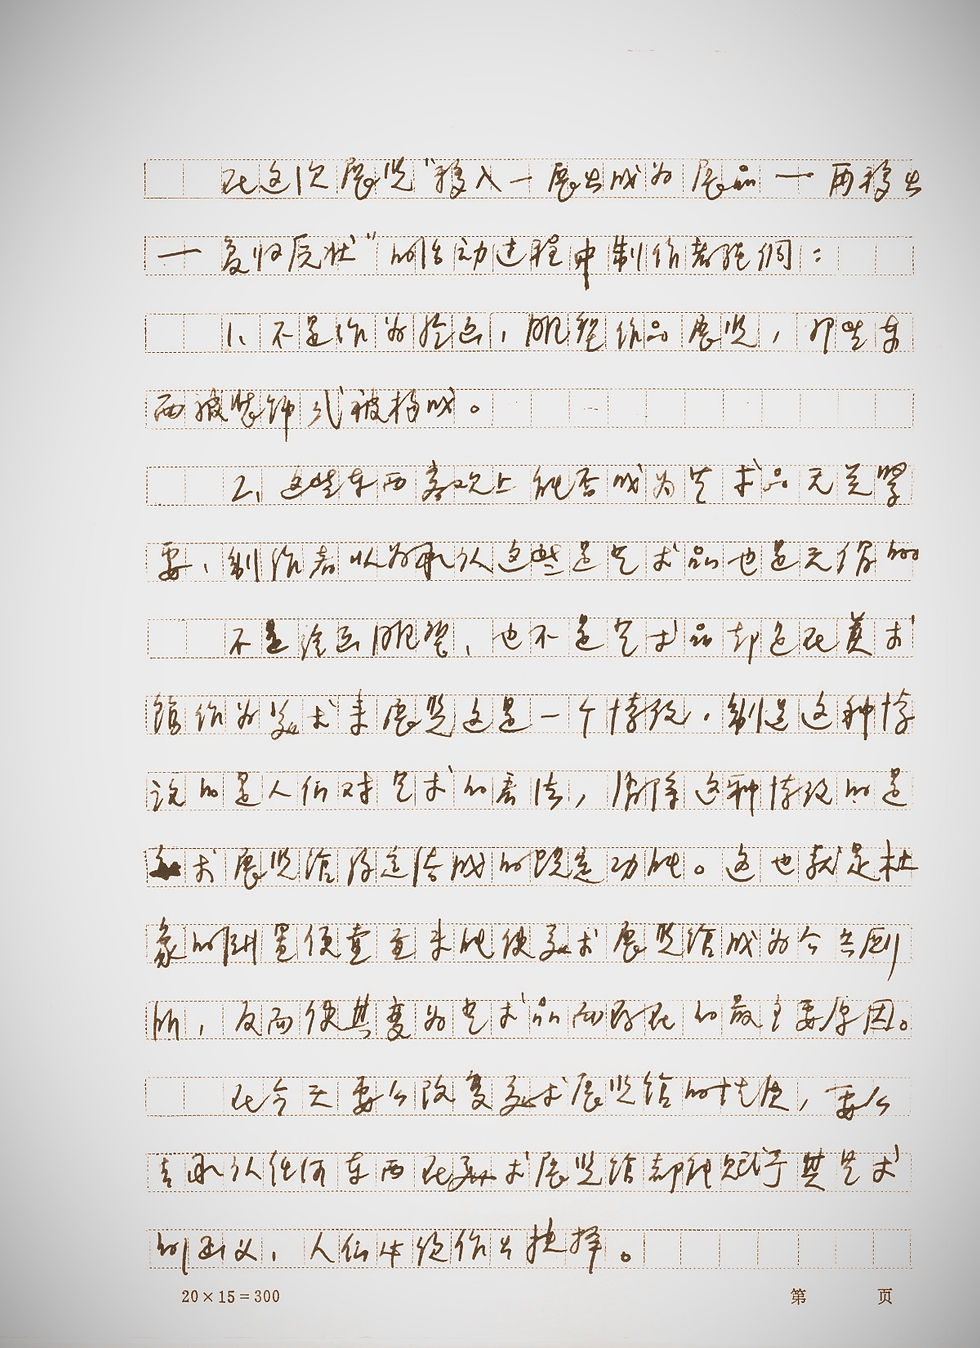 在这次展览“移入一展出成为展品一再移出
一复归原状”的活动过程中制作者强调：
1、不是作为绘画，雕塑作品展览，那些东
西被装饰式被构成。
2、这些东西客观上能否成为艺术品无关紧
要，制作者以为承认这些是艺术品也是无妨的
不是绘画雕塑，也不是艺术品却是在美术
馆作为美术来展览这是一个情段，制造这种情
况的是人们对艺术的看法，消除这种情段的是
美术展览馆及造成的既定功能。这也就是杜
象的倒置便壶並未能使美术展览馆成为公共厕
所，反而使其变为艺术品而存在的最主要原因。
在今天要么改变美术展览馆的性质，要么
去承认任何东西在美术展览馆都能赋予其艺术
的函义，人们体应作出抉择。
20×15=300
第 页